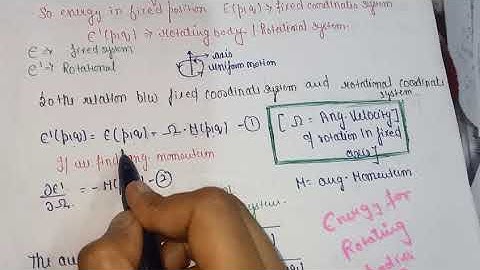 So energy in fixed position E(p,q) → fixed coordinates system
E'(p,q) → rotating body / Rotational system
E → fixed system
E' → Rotational
axis
uniform motion
So the relation b/w fixed coordinate system and rotational coordinate system
E'(p,q) = E(p,q) = Ω · M(p,q) - ①
[Ω = Ang. Velocity of rotation in fixed axis]
If we find ang. momentum
∂E'/∂Ω = - M( - ②
M = ang. Momentum
Energy for
Rotating
system
The au